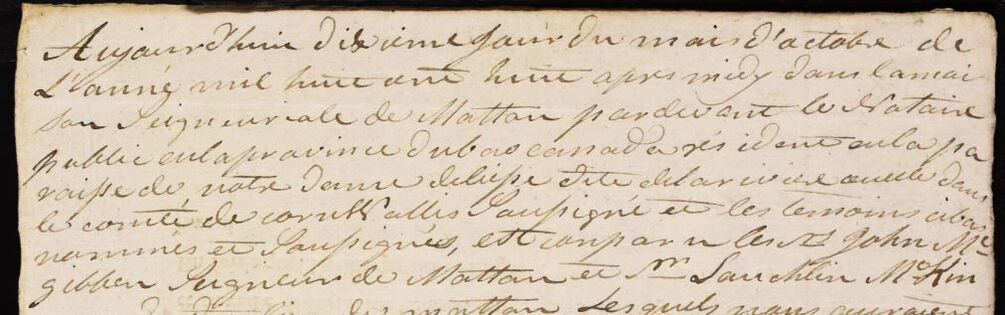 Aujourd'huie dixieme Jour du mois d'octobre de
L'anné mil huit cent huit apres midy dans la mai
son Seigneuriale de Mattan pardevant le Notaire
public en la province du bas canada résident en la pa
roisse de notre dame de liesse dite de la riviere ouelle dans
le comté de cornWallis Soussigné et les temoins cibas
nommés et Soussignés, est comparu les Mrs John Mc
gibben Seigneur de Mattan et Mr Lauchlin McKin
de mattan Lesquels nous auroient